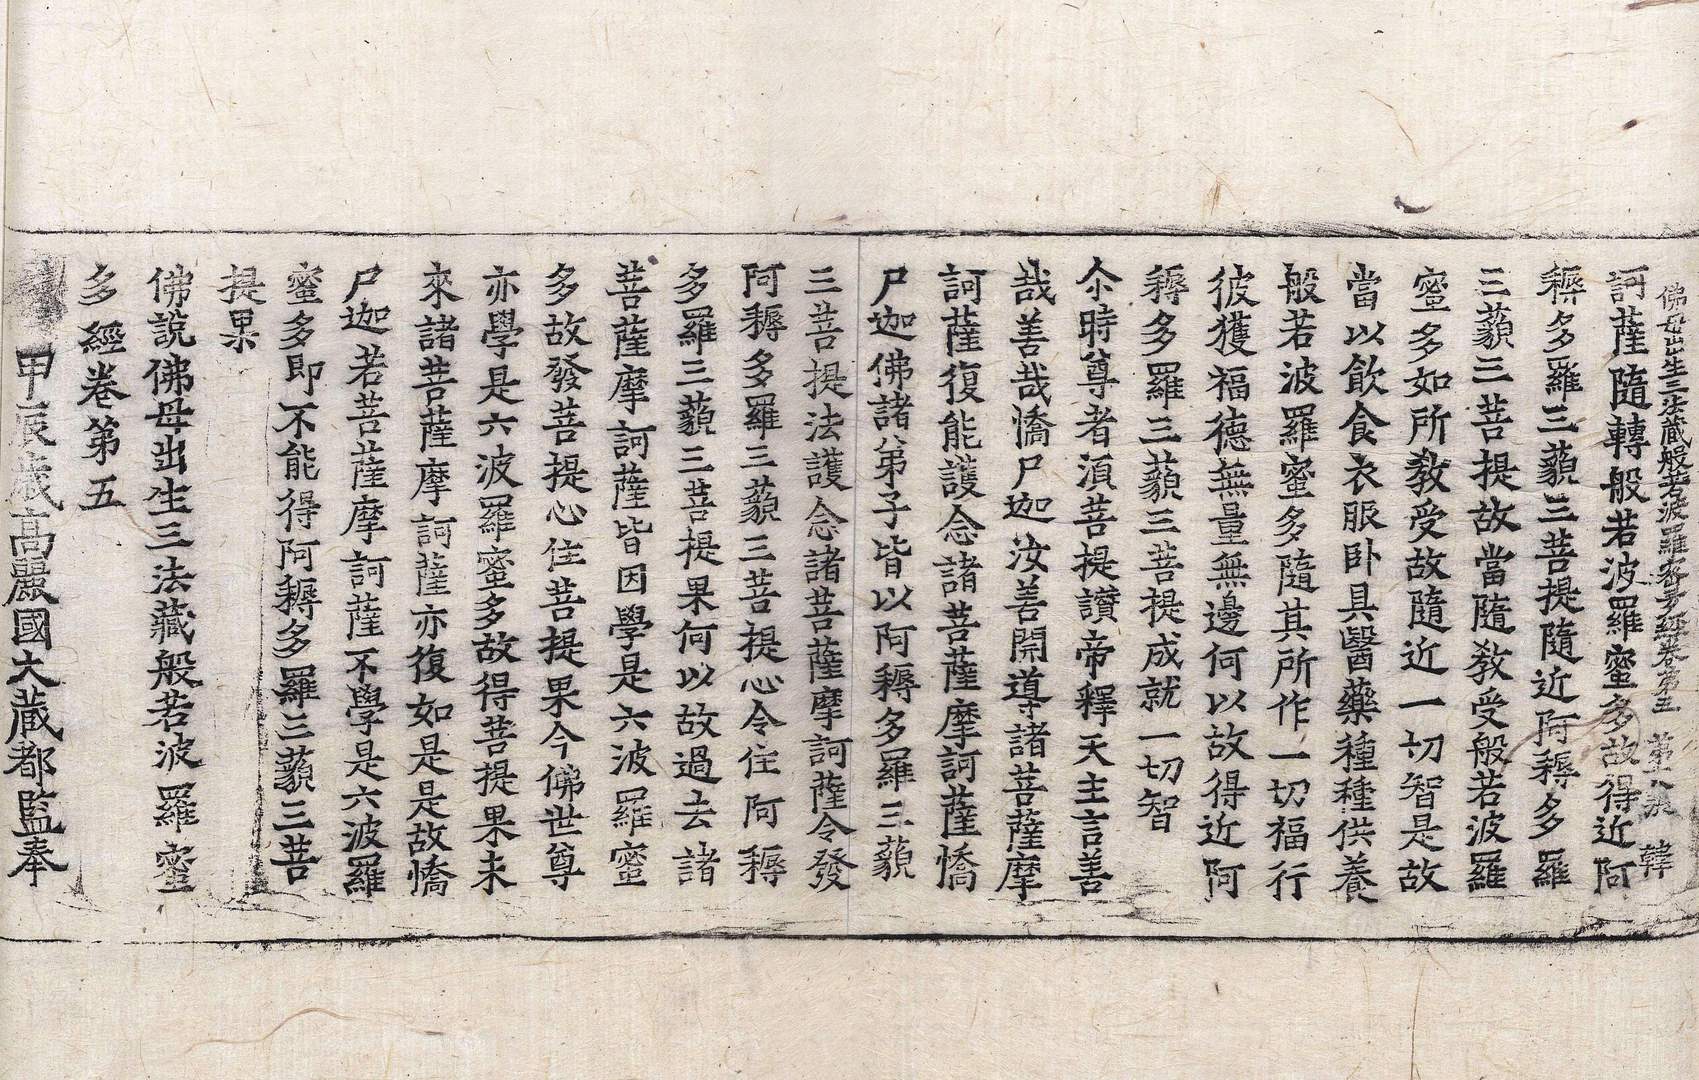 佛母出生三法藏般若波羅蜜多經卷第五　第八張　韓
訶薩隨轉般若波羅蜜多故得近阿
耨多羅三藐三菩提隨近阿耨多羅
三藐三菩提故當隨教受般若波羅
蜜多如所教受故隨近一切智是故
當以飲食衣服卧具醫藥種種供養
般若波羅蜜多隨其所作一切福行
彼獲福德無量無邊何以故得近阿
耨多羅三藐三菩提成就一切智
尒時尊者湏菩提讃帝釋天主言善
哉善哉憍尸迦汝善開導諸菩薩摩
訶薩復能護念諸菩薩摩訶薩憍
尸迦佛諸弟子皆以阿耨多羅三藐
三菩提法護念諸菩薩摩訶薩令發
阿耨多羅三藐三菩提心令住阿耨
多羅三藐三菩提果何以故過去諸
菩薩摩訶薩皆因學是六波羅蜜
多故發菩提心住菩提果今佛世尊
亦學是六波羅蜜多故得菩提果未
來諸菩薩摩訶薩亦復如是是故憍
尸迦若菩薩摩訶薩不學是六波羅
蜜多即不能得阿耨多羅三藐三菩
提果
佛說佛母出生三法藏般若波羅蜜
多經卷第五
甲辰歳高麗國大藏都監奉